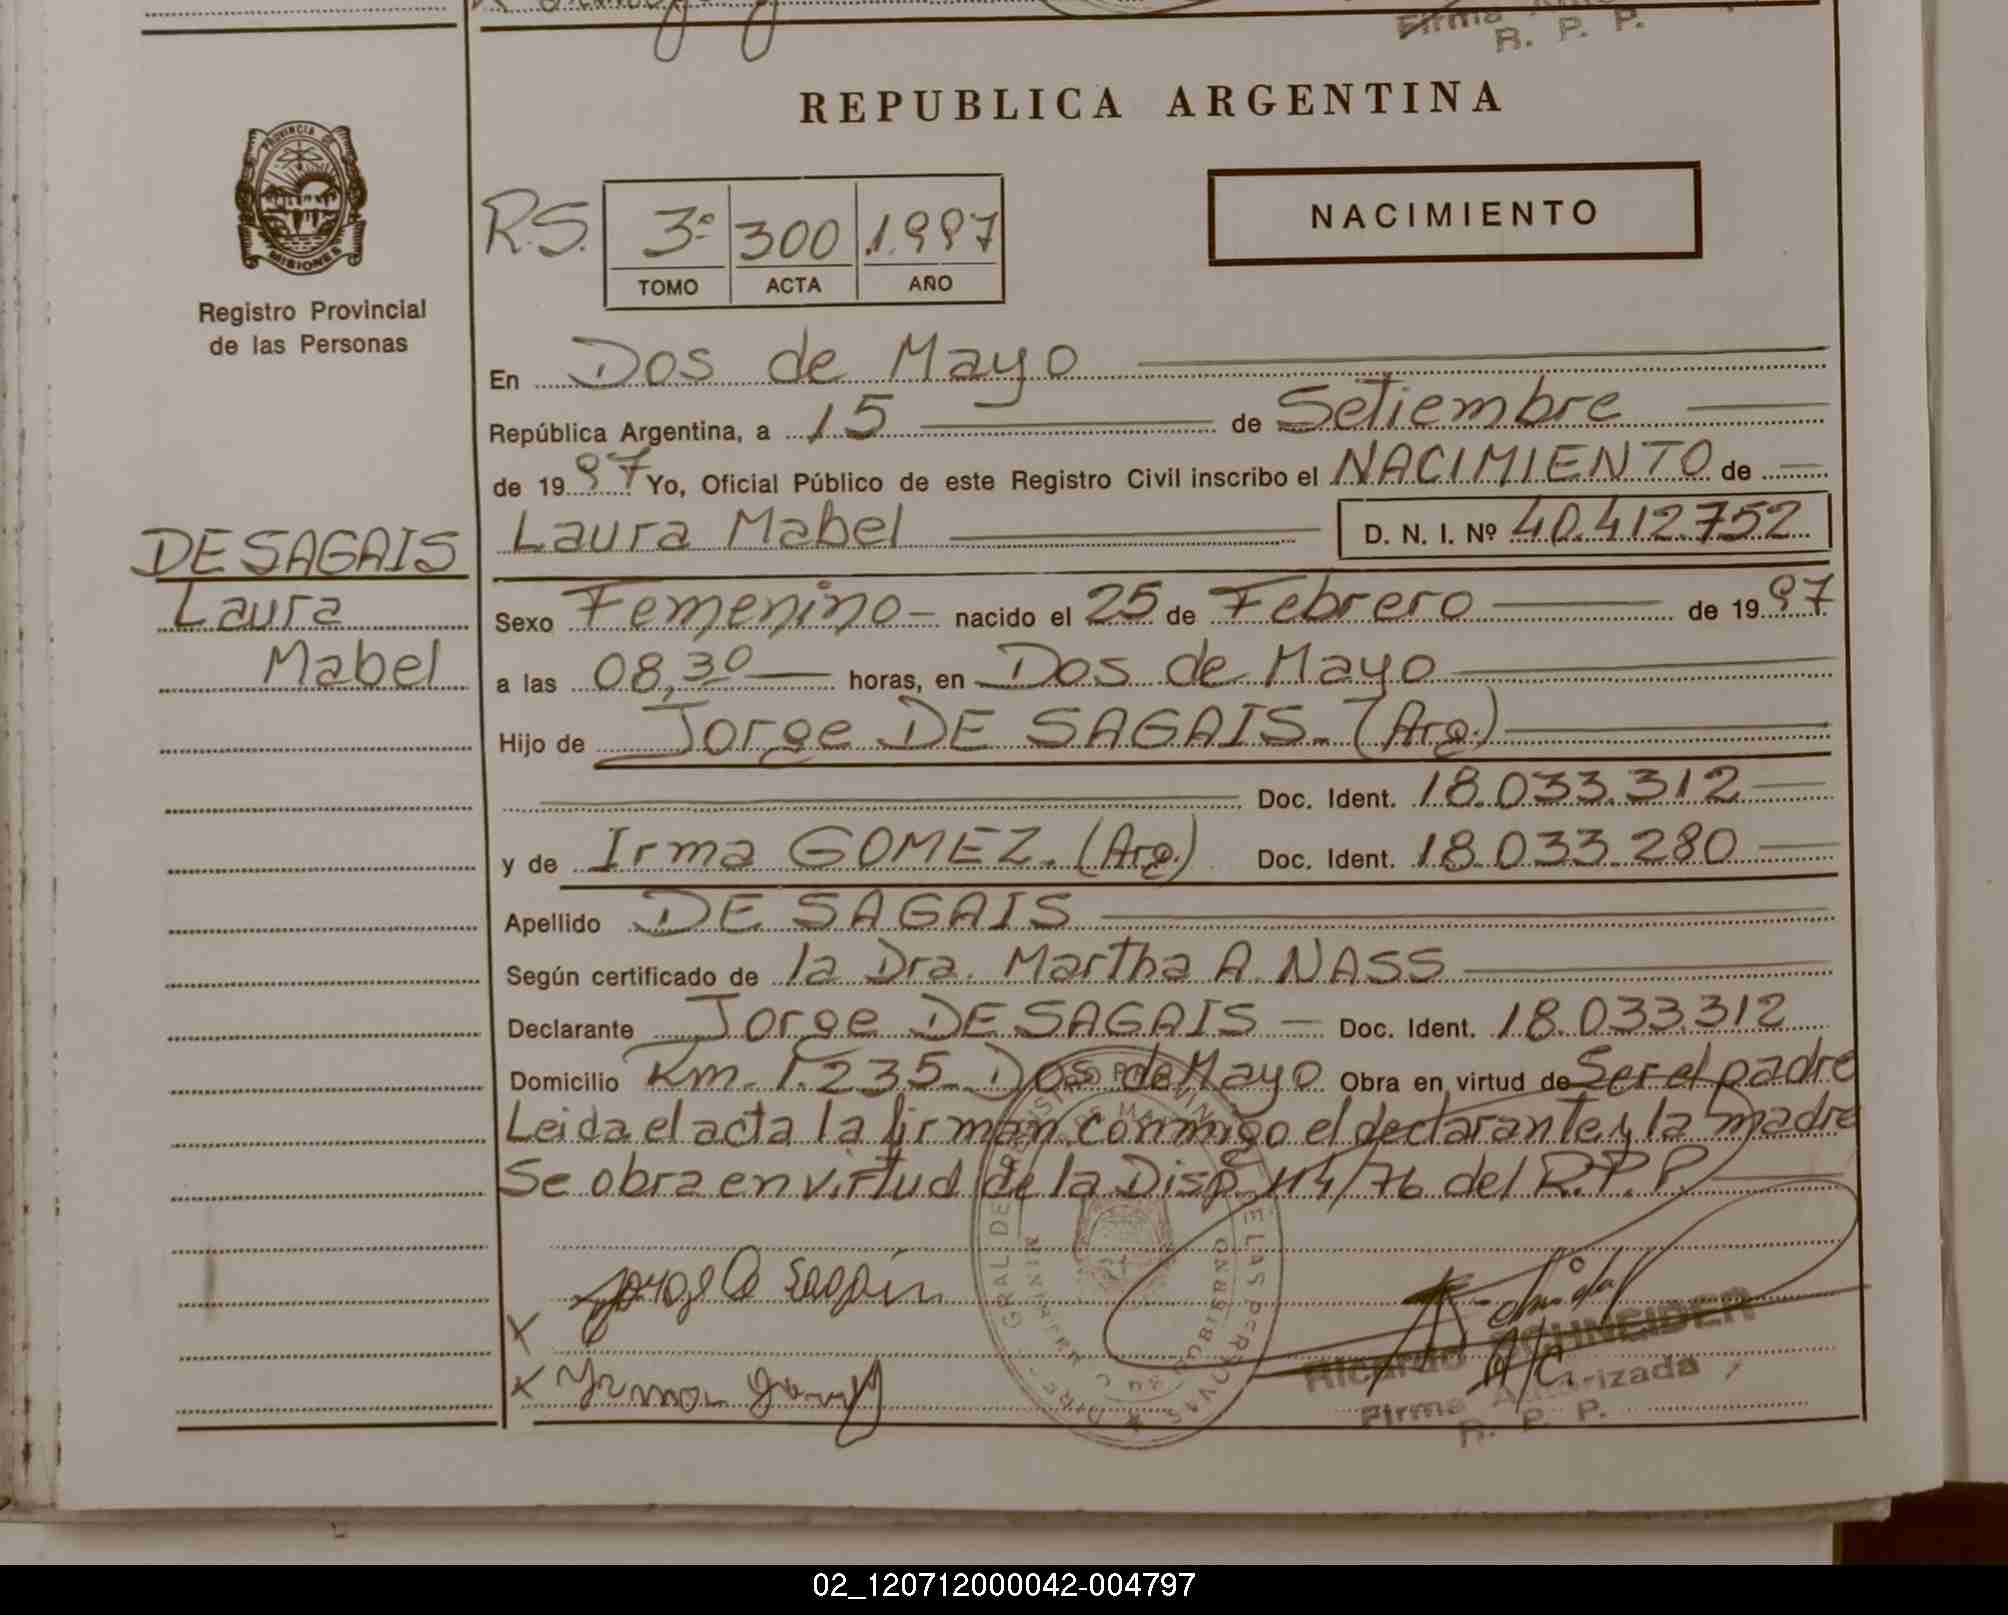 Firma
R. P. P.
REPUBLICA ARGENTINA
PROVINCIA DE
MISIONES
Registro Provincial
de las Personas
R.S. 3º 300 1997
TOMO ACTA AÑO
NACIMIENTO
En Dos de Mayo
República Argentina, a 15 de Setiembre
de 1997 Yo, Oficial Público de este Registro Civil inscribo el NACIMIENTO de
DE SAGAIS
Laura
Mabel
Laura Mabel D. N. I. Nº 40.412.752
Sexo Femenino nacido el 25 de Febrero de 1997
a las 08,30 horas, en Dos de Mayo
Hijo de Jorge DE SAGAIS. (Arg.)
Doc. Ident. 18.033.312
y de Irma GOMEZ. (Arg.) Doc. Ident. 18.033.280
Apellido DE SAGAIS
Según certificado de la Dra. Martha A. NASS
Declarante Jorge DE SAGAIS Doc. Ident. 18.033.312
Domicilio Km. 1.235 Dos de Mayo Obra en virtud de Ser el padre
Leida el acta la firman conmigo el declarante y la madre
Se obra en virtud de la Disp. 114/76 del R.P.P.
Ricardo SCHNEIDER
A/C.
Firma Autorizada
R. P. P.
02_120712000042-004797